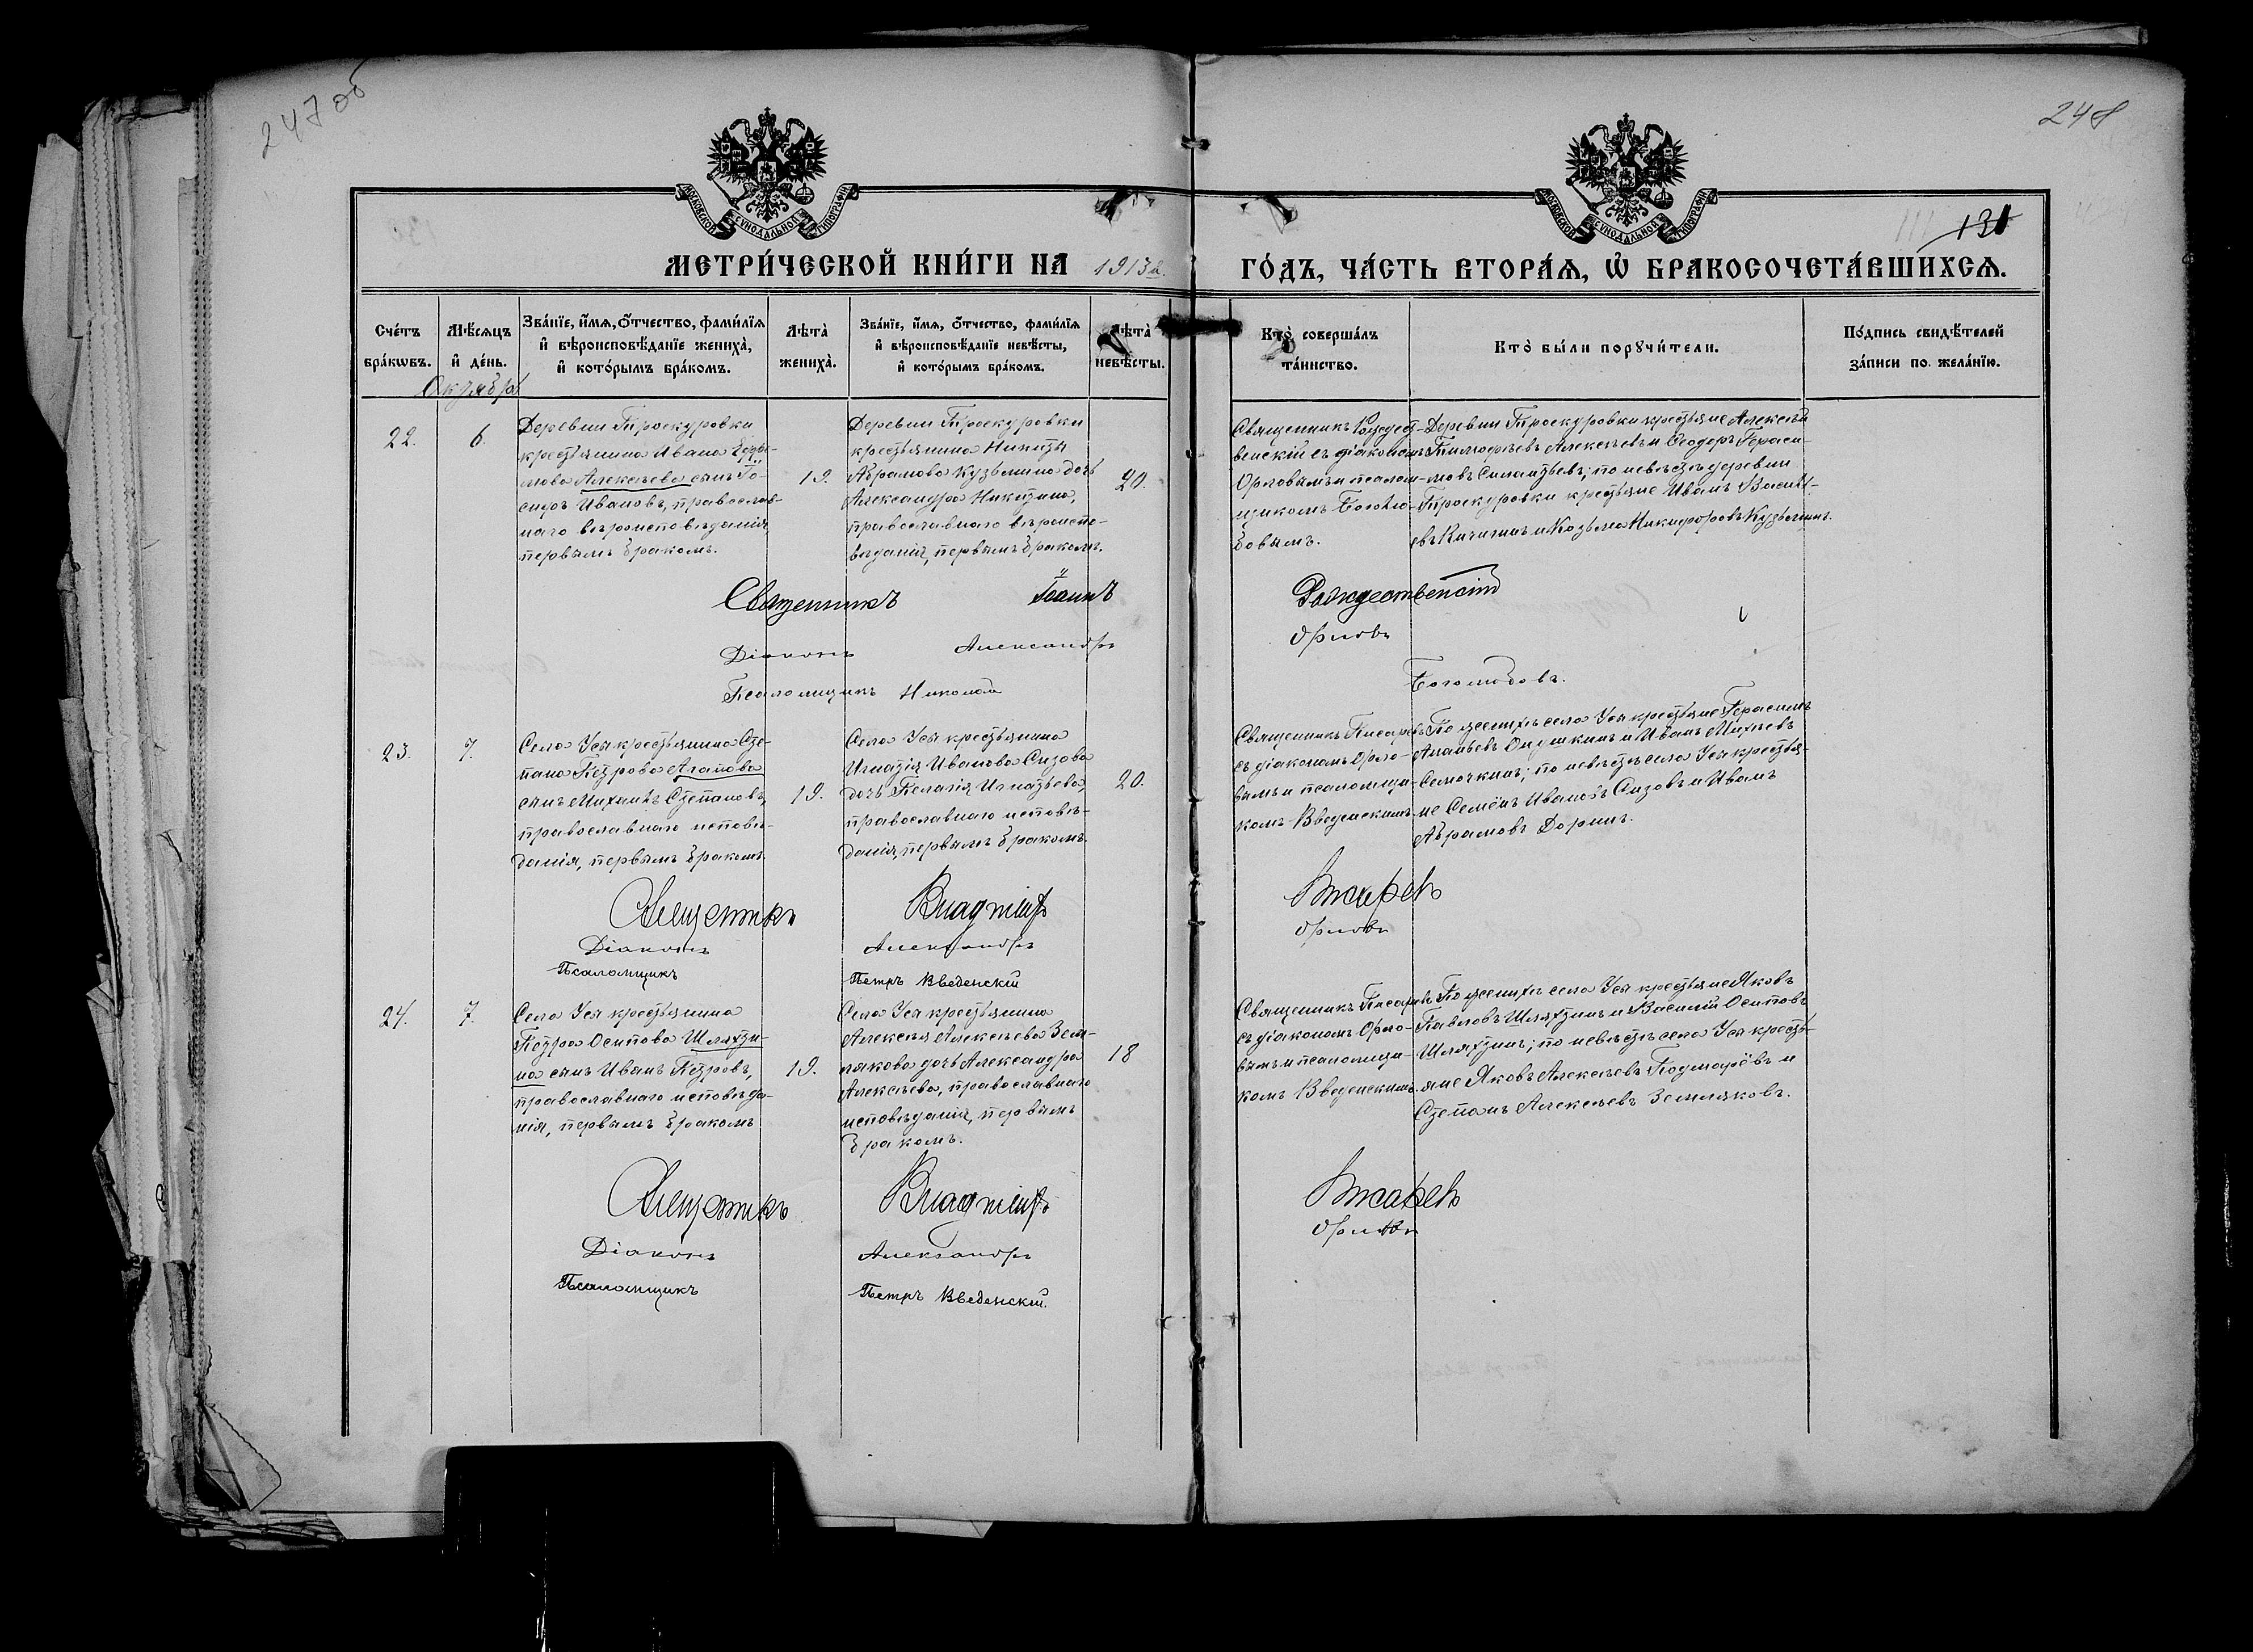 247 об
248
МОСКОВСКОЙ СѴНОДАЛЬНОЙ ТИПОГРАФІИ
МОСКОВСКОЙ СѴНОДАЛЬНОЙ ТИПОГРАФІИ
131
МЕТРИ́ЧЕСКОЙ КНИ́ГИ НА 1913 г.
ГО́ДЪ, ЧА́СТЬ ВТОРА́Ѧ, Ѽ БРАКОСОЧЕТА́ВШИХСѦ.
Сче́тъ бра́кѡвъ.
Мѣ́сѧцъ и҆ де́нь.
Зва́нїе, и҆́мѧ, ѻ҆́тчество, фами́лїѧ
и҆ вѣроисповѣ́данїе жениха̀,
и҆ кото́рымъ бра́комъ.
Лѣта̀ жениха̀.
Зва́нїе, и҆́мѧ, ѻ҆́тчество, фами́лїѧ
и҆ вѣроисповѣ́данїе невѣ́сты,
и҆ кото́рымъ бра́комъ.
Лѣта̀ невѣ́сты.
Кто̀ соверша́лъ
та́инство.
Кто̀ бы́ли порꙋчи́тели.
По́дпись свидѣ́телей
за́писи по жела́нїю.
Октября
22.
6.
Деревни Проскуровки
крестьянина Ивана
Алексѣева сынъ
Ивановъ, православ-
наго вѣроисповѣданія,
первымъ бракомъ.
19.
Деревни Проскуровки
крестьянина Никиты
Абрамова Кузьмина дочь
Александра Никитина,
православнаго вѣроиспо-
вѣданія, первымъ бракомъ.
20.
Священникъ Рождест-
венскій съ діакономъ
Орловымъ и псалом-
щикомъ Боголю-
бовымъ.
Деревни Проскуровки крестьяне Алексѣй
Тимофѣевъ Алексѣевъ и Ѳеодоръ Гераси-
мовъ Силантьевъ; по невѣстѣ деревни
Проскуровки крестьяне Иванъ Василь-
евъ Кичигинъ и Козьма Никифоровъ Кузьминъ.
Священникъ Іоаннъ Рождественскій
Діаконъ Александръ Орловъ
Псаломщикъ Николай Боголюбовъ.
23.
7.
Села Усы крестьянина Сте-
пана Петрова Агапова
сынъ Михаилъ Степановъ,
православнаго исповѣ-
данія, первымъ бракомъ.
19.
Села Усы крестьянина
Игнатія Иванова Сизова
дочь Пелагія Игнатьева,
православнаго исповѣ-
данія, первымъ бракомъ.
20.
Священникъ Писаревъ
съ діакономъ Орло-
вымъ и псаломщи-
комъ Введенскимъ.
По женихѣ села Усы крестьяне Герасимъ
Ананьевъ и Иванъ
Семочкинъ; по невѣстѣ села Усы крестья-
не Семёнъ Ивановъ Сизовъ и Иванъ
Абрамовъ Доринъ.
Священникъ Владиміръ Писаревъ
Діаконъ Александръ Орловъ
Псаломщикъ Петръ Введенскій
24.
7.
Села Усы крестьянина
Петра Осипова Шляхти-
на сынъ Иванъ Петровъ,
православнаго исповѣда-
нія, первымъ бракомъ
19.
Села Усы крестьянина
Алексѣя Алексѣева Зем-
лякова дочь Александра
Алексѣева, православнаго
исповѣданія, первымъ
бракомъ.
18
Священникъ Писаревъ
съ діакономъ Орло-
вымъ и псаломщи-
комъ Введенскимъ.
По женихѣ села Усы крестьяне Яковъ
Павловъ Шляхтинъ и Василій Осиповъ
Шляхтинъ; по невѣстѣ села Усы кресть-
яне Яковъ Алексѣевъ Подмарёвъ и
Степанъ Алексѣевъ Земляковъ.
Священникъ Владиміръ Писаревъ
Діаконъ Александръ Орловъ
Псаломщикъ Петръ Введенскій.